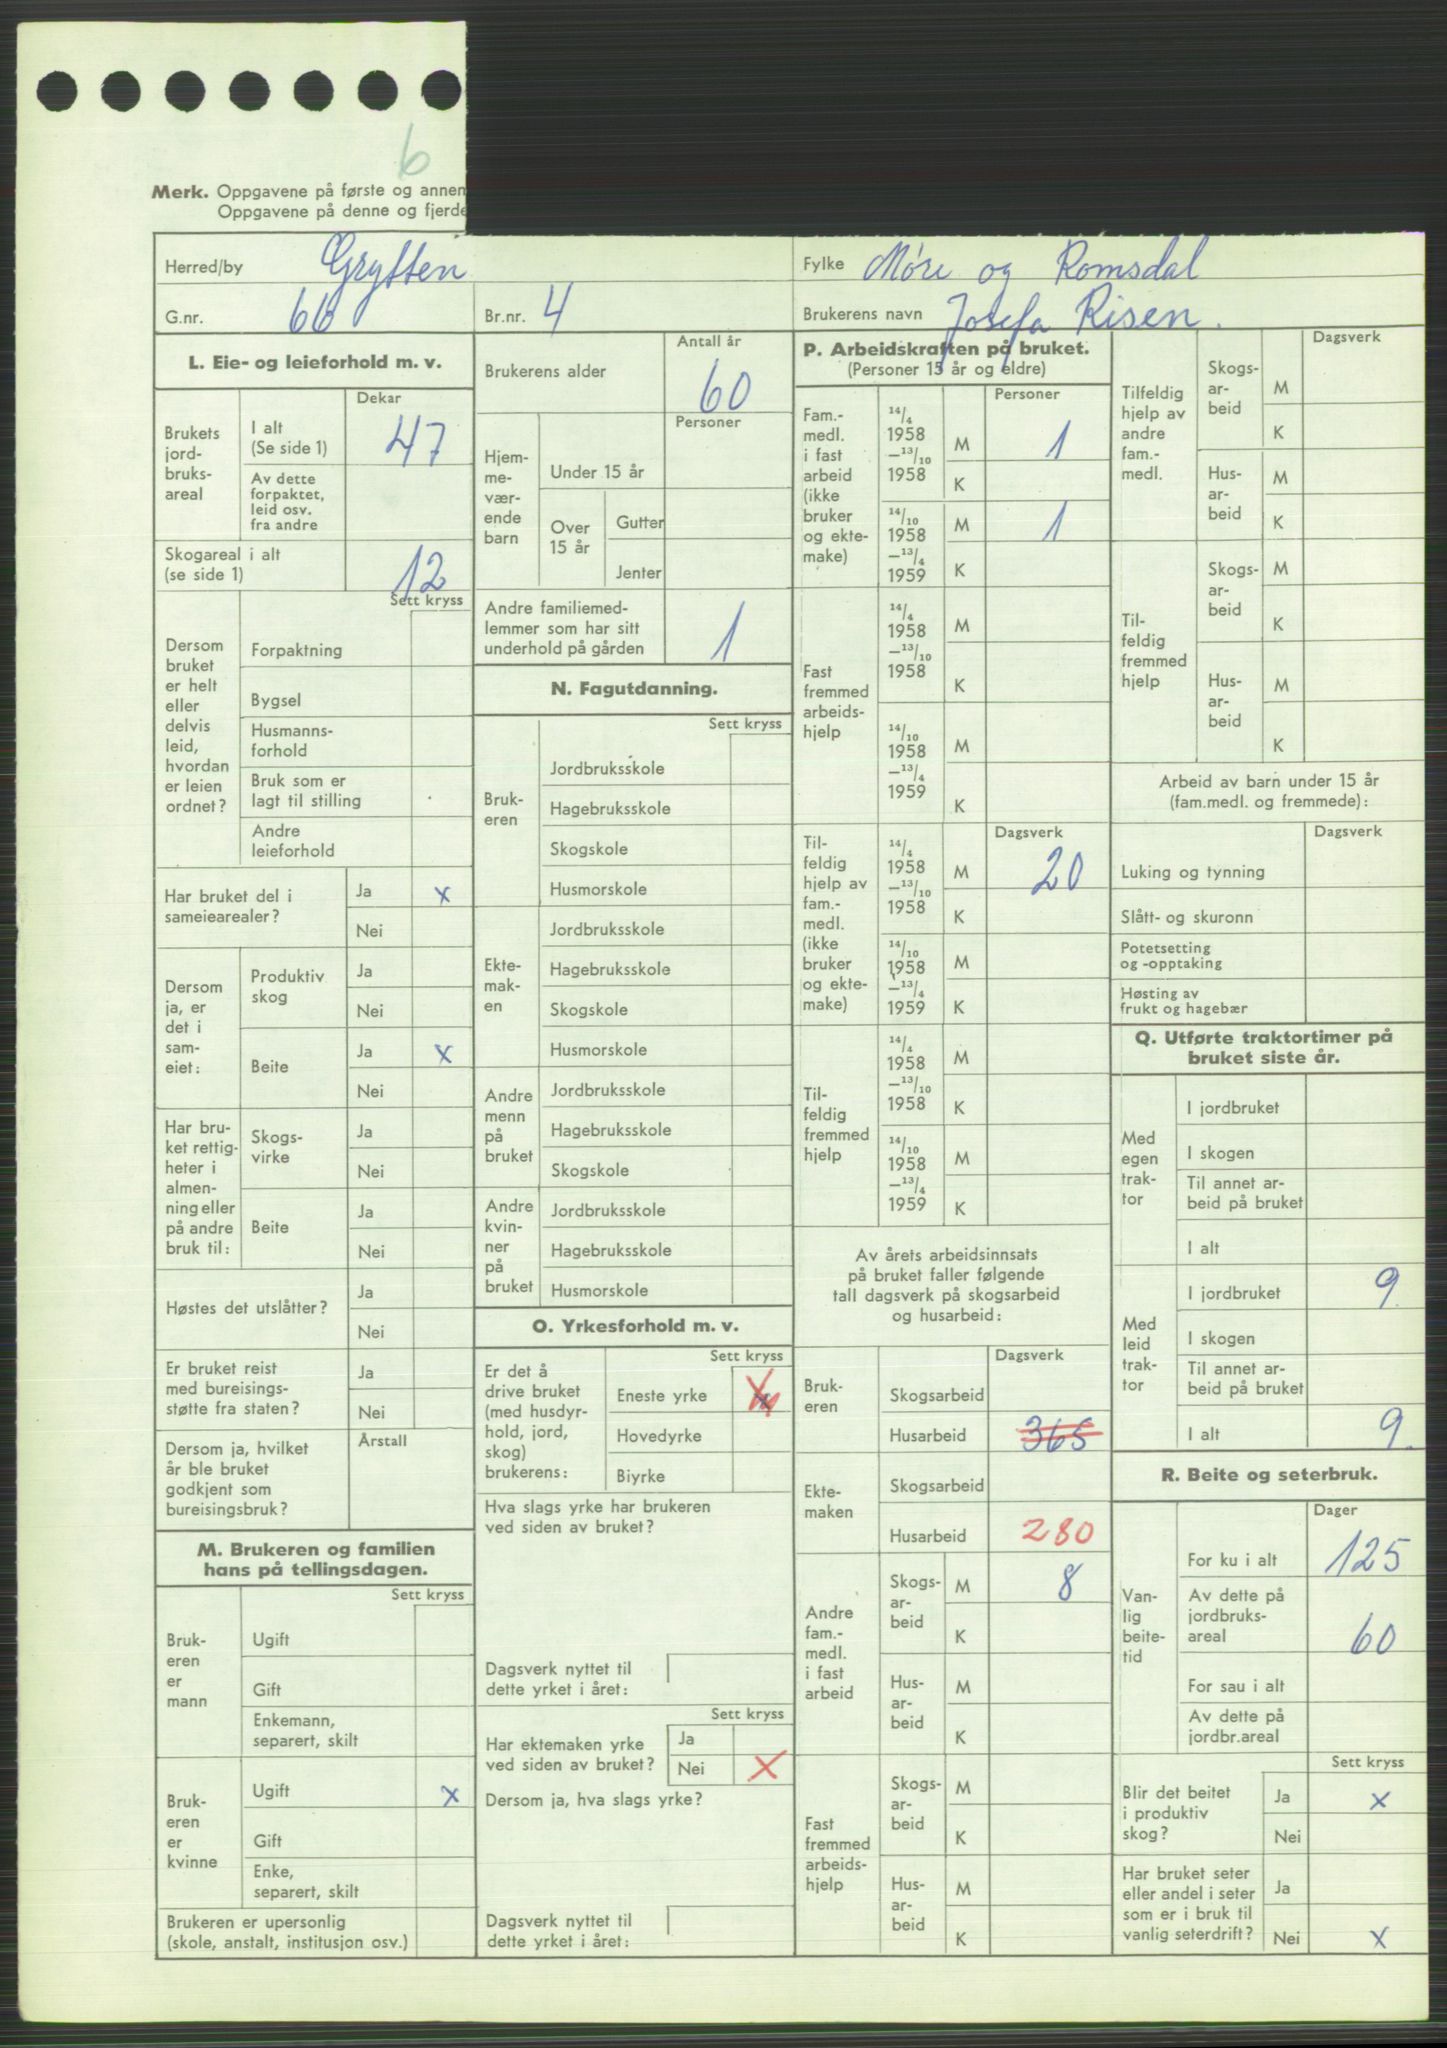 6
Merk. Oppgavene på første og annen
Oppgavene på denne og fjerde
Herred/by Grytten Fylke Møre og Romsdal
G.nr. 66 Br.nr. 4 Brukerens navn Josefa Risen.
L. Eie- og leieforhold m. v.
Dekar
Brukets jord-bruks-areal
I alt (Se side 1) 47
Av dette forpaktet, leid osv. fra andre
Skogareal i alt (se side 1) 12
Sett kryss
Dersom bruket er helt eller delvis leid, hvordan er leien ordnet?
Forpaktning
Bygsel
Husmanns-forhold
Bruk som er lagt til stilling
Andre leieforhold
Har bruket del i sameiearealer?
Ja x
Nei
Dersom ja, er det i sam-eiet:
Produktiv skog
Ja
Nei
Beite
Ja x
Nei
Har bru-ket rettig-heter i almen-ning eller på andre bruk til:
Skogs-virke
Ja
Nei
Beite
Ja
Nei
Høstes det utslåtter?
Ja
Nei
Er bruket reist med bureisings-støtte fra staten?
Ja
Nei
Dersom ja, hvilket år ble bruket godkjent som bureisingsbruk?
Årstall
M. Brukeren og familien hans på tellingsdagen.
Sett kryss
Bruk-eren er mann
Ugift
Gift
Enkemann, separert, skilt
Bruk-eren er kvinne
Ugift x
Gift
Enke, separert, skilt
Brukeren er upersonlig (skole, anstalt, institusjon osv.)
Antall år
Brukerens alder 60
Personer
Hjem-me-vær-ende barn
Under 15 år
Over 15 år
Gutter
Jenter
Andre familiemed-lemmer som har sitt underhold på gården 1
N. Fagutdanning.
Sett kryss
Bruk-eren
Jordbruksskole
Hagebruksskole
Skogskole
Husmorskole
Ekte-mak-en
Jordbruksskole
Hagebruksskole
Skogskole
Husmorskole
Andre menn på bruket
Jordbruksskole
Hagebruksskole
Skogskole
Andre kvin-ner på bruket
Jordbruksskole
Hagebruksskole
Husmorskole
O. Yrkesforhold m. v.
Sett kryss
Er det å drive bruket (med husdyr-hold, jord, skog) brukerens:
Eneste yrke x
Hovedyrke
Biyrke
Hva slags yrke har brukeren ved siden av bruket?
Dagsverk nyttet til dette yrket i året:
Sett kryss
Har ektemaken yrke ved siden av bruket?
Ja
Nei x
Dersom ja, hva slags yrke?
Dagsverk nyttet til dette yrket i året:
P. Arbeidskraften på bruket.
(Personer 15 år og eldre)
Personer
Fam.-medl. i fast arbeid (ikke bruker og ekte-make)
14/4 1958 –13/10 1958
M 1
K
14/10 1958 –13/4 1959
M 1
K
Fast fremmed arbeids-hjelp
14/4 1958 –13/10 1958
M
K
14/10 1958 –13/4 1959
M
K
Dagsverk
Til-feldig hjelp av fam.-medl. (ikke bruker og ekte-make)
14/4 1958 –13/10 1958
M 20
K
14/10 1958 –13/4 1959
M
K
Til-feldig fremmed hjelp
14/4 1958 –13/10 1958
M
K
14/10 1958 –13/4 1959
M
K
Av årets arbeidsinnsats
på bruket faller følgende
tall dagsverk på skogsarbeid
og husarbeid:
Dagsverk
Bruk-eren
Skogsarbeid
Husarbeid 365
Ekte-maken
Skogsarbeid
Husarbeid 280
Andre fam.-medl. i fast arbeid
Skogs-ar-beid
M 8
K
Hus-ar-beid
M
K
Fast fremmed arbeids-hjelp
Skogs-ar-beid
M
K
Hus-ar-beid
M
K
Dagsverk
Tilfeldig hjelp av andre fam.-medl.
Skogs-ar-beid
M
K
Hus-ar-beid
M
K
Til-feldig fremmed hjelp
Skogs-ar-beid
M
K
Hus-ar-beid
M
K
Arbeid av barn under 15 år
(fam.medl. og fremmede):
Dagsverk
Luking og tynning
Slått- og skuronn
Potetsetting og -opptaking
Høsting av frukt og hagebær
Q. Utførte traktortimer på bruket siste år.
Med egen trak-tor
I jordbruket
I skogen
Til annet ar-beid på bruket
I alt
Med leid trak-tor
I jordbruket 9.
I skogen
Til annet ar-beid på bruket
I alt 9.
R. Beite og seterbruk.
Dager
Van-lig beite-tid
For ku i alt 125
Av dette på jordbruks-areal 60
For sau i alt
Av dette på jordbr.areal
Sett kryss
Blir det beitet i produktiv skog?
Ja x
Nei
Har bruket seter eller andel i seter som er i bruk til vanlig seterdrift?
Ja
Nei x